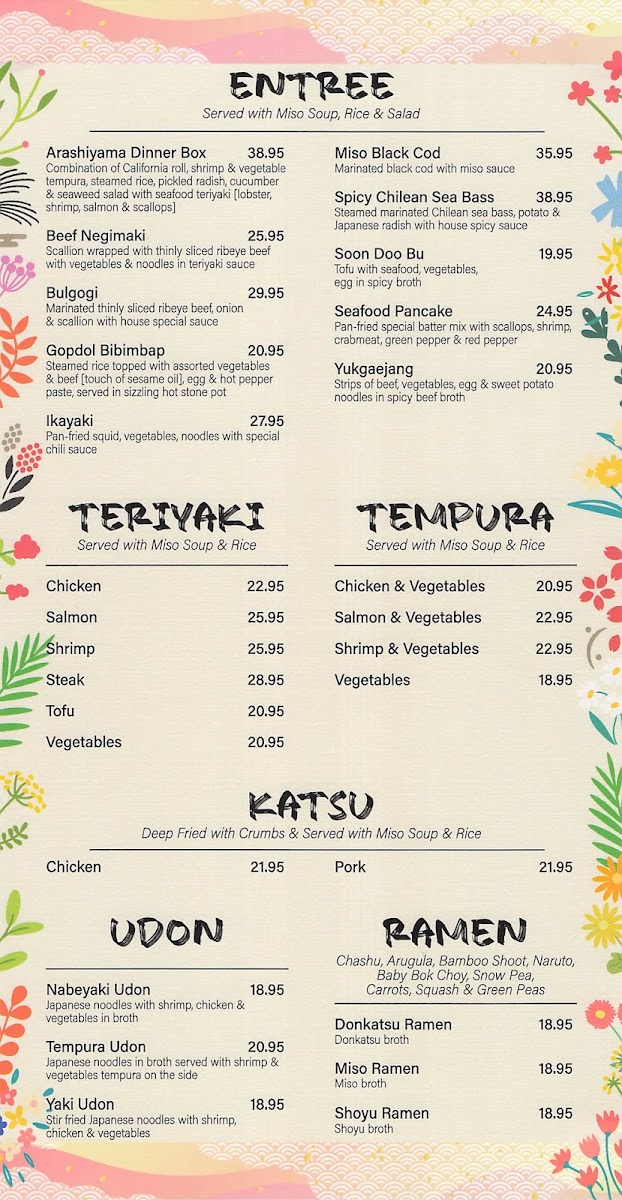 ENTREE
Served with Miso Soup, Rice & Salad
Arashiyama Dinner Box 38.95
Combination of California roll, shrimp & vegetable
tempura, steamed rice, pickled radish, cucumber
& seaweed salad with seafood teriyaki [lobster,
shrimp, salmon & scallops]
Beef Negimaki 25.95
Scallion wrapped with thinly sliced ribeye beef
with vegetables & noodles in teriyaki sauce
Bulgogi 29.95
Marinated thinly sliced ribeye beef, onion
& scallion with house special sauce
Gopdol Bibimbap 20.95
Steamed rice topped with assorted vegetables
& beef [touch of sesame oil], egg & hot pepper
paste, served in sizzling hot stone pot
Ikayaki 27.95
Pan-fried squid, vegetables, noodles with special
chili sauce
Miso Black Cod 35.95
Marinated black cod with miso sauce
Spicy Chilean Sea Bass 38.95
Steamed marinated Chilean sea bass, potato &
Japanese radish with house spicy sauce
Soon Doo Bu 19.95
Tofu with seafood, vegetables,
egg in spicy broth
Seafood Pancake 24.95
Pan-fried special batter mix with scallops, shrimp,
crabmeat, green pepper & red pepper
Yukgaejang 20.95
Strips of beef, vegetables, egg & sweet potato
noodles in spicy beef broth
TERIYAKI
Served with Miso Soup & Rice
Chicken 22.95
Salmon 25.95
Shrimp 25.95
Steak 28.95
Tofu 20.95
Vegetables 20.95
TEMPURA
Served with Miso Soup & Rice
Chicken & Vegetables 20.95
Salmon & Vegetables 22.95
Shrimp & Vegetables 22.95
Vegetables 18.95
KATSU
Deep Fried with Crumbs & Served with Miso Soup & Rice
Chicken 21.95
Pork 21.95
UDON
Nabeyaki Udon 18.95
Japanese noodles with shrimp, chicken &
vegetables in broth
Tempura Udon 20.95
Japanese noodles in broth served with shrimp &
vegetables tempura on the side
Yaki Udon 18.95
Stir fried Japanese noodles with shrimp,
chicken & vegetables
RAMEN
Chashu, Arugula, Bamboo Shoot, Naruto,
Baby Bok Choy, Snow Pea,
Carrots, Squash & Green Peas
Donkatsu Ramen 18.95
Donkatsu broth
Miso Ramen 18.95
Miso broth
Shoyu Ramen 18.95
Shoyu broth